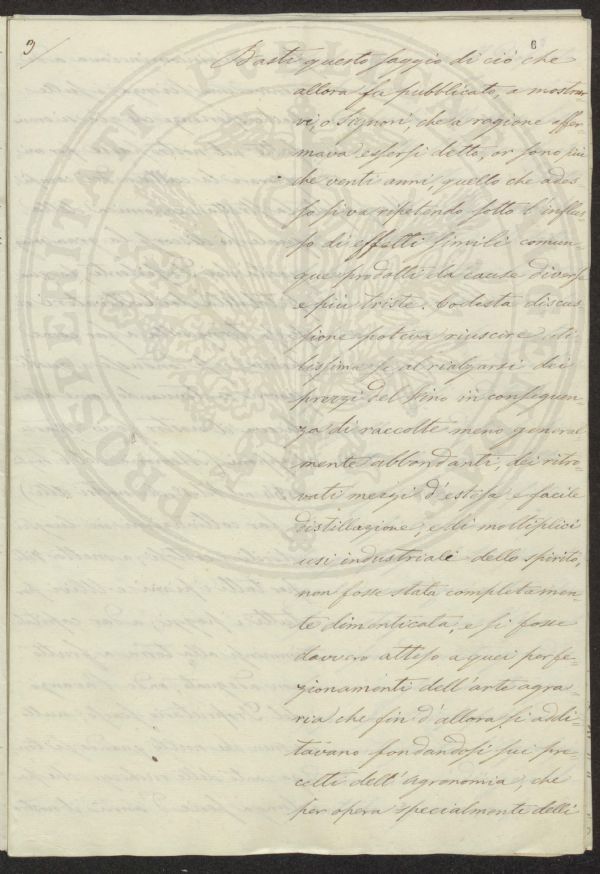 9/
6
Basti questo saggio di ciò che
allora fu pubblicato, a mostrar
vi, o Signori, che a ragione affer
mava essersi detto, or sono più
che venti anni, quello che ades
so si va ripetendo sotto l'influs
so di effetti simili comun
que prodotti da cause diverse
e più triste. Codesta discus
sione poteva riuscire uti
lissima se al rialzarsi dei
prezzi del vino in conseguen
za di raccolte meno general
mente abbondanti, dei ritro
vati mezzi d'estesa e facile
distillazione, e di moltiplici
usi industriali dello spirito,
non fosse stata completamen
te dimenticata, e si fosse
davvero atteso a quei perfe
zionamenti dell'arte agra
ria che fin d'allora si addi
tavano fondandosi sui pre
cetti dell'Agronomia, che
per opera specialmente delli
PROSPERITATI PUBLICAE